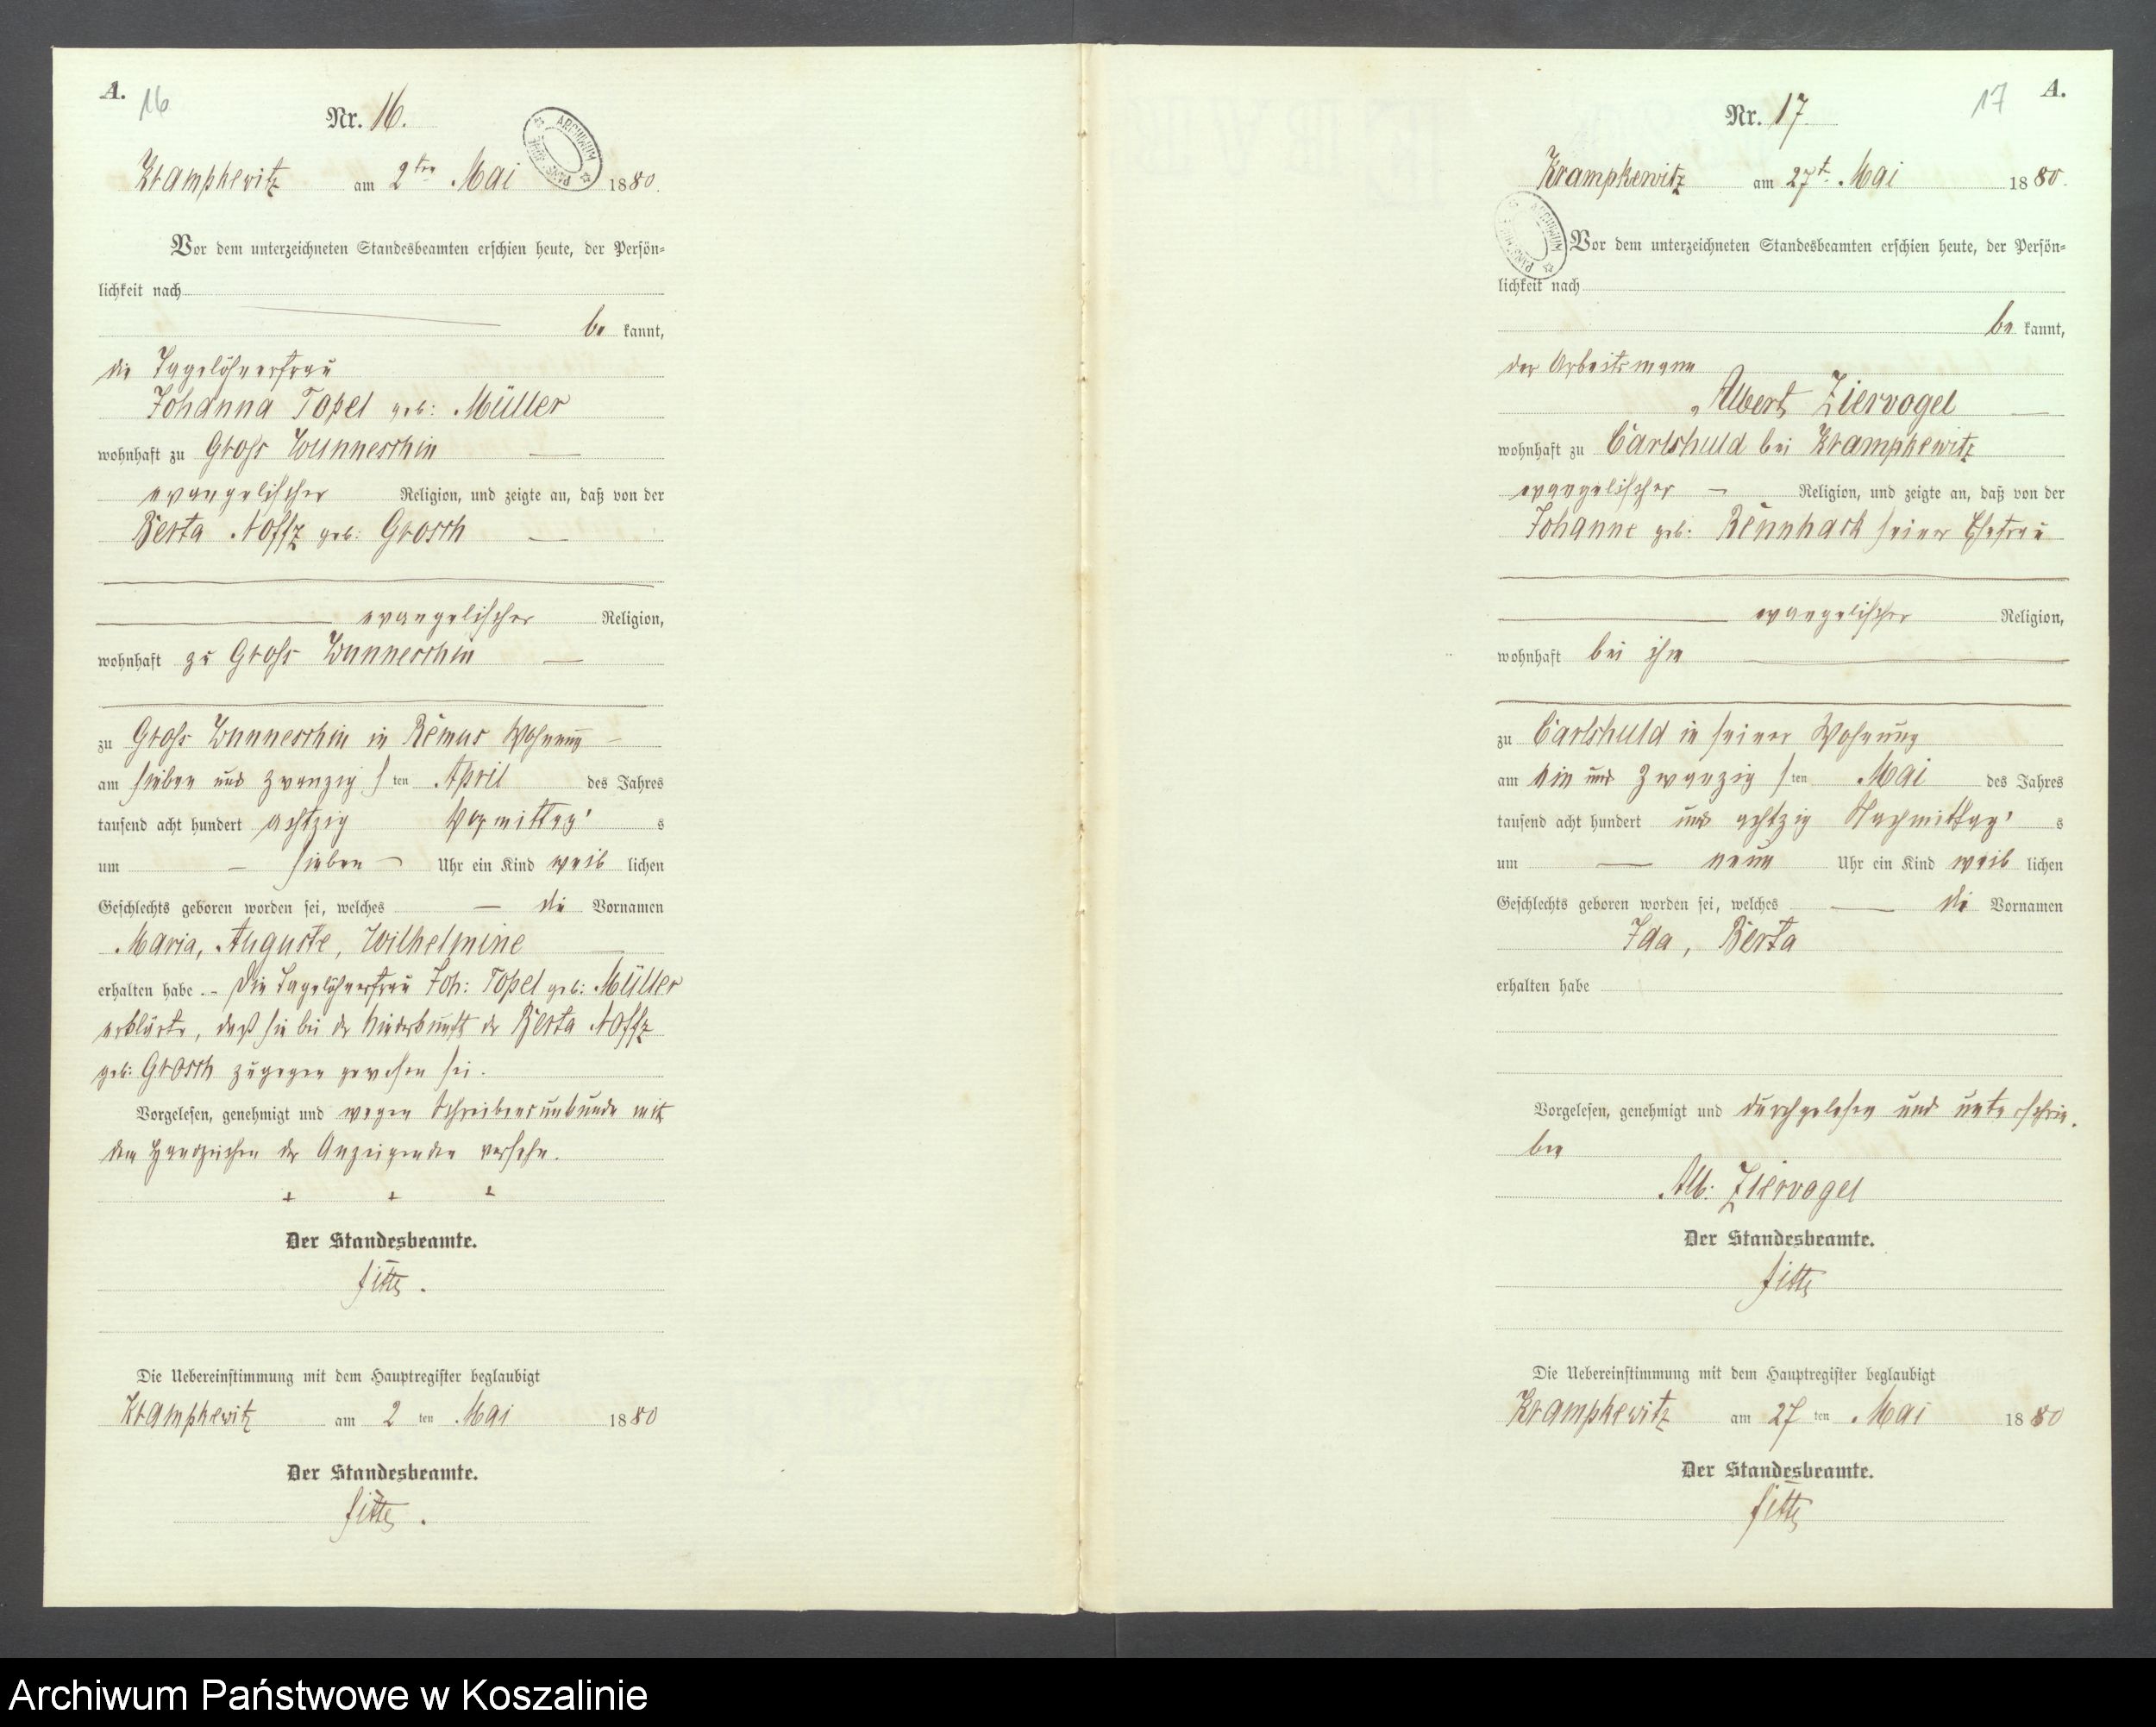 A.
16
Nr. 16.
ARCHIWUM
Krampkewitz am 2ten Mai 1880.
Vor dem unterzeichneten Standesbeamten erschien heute, der Persön=
lichkeit nach
be kannt,
die Tagelöhnerfrau
Johanna Topel geb: Müller
wohnhaft zu Gross Wunneschin
evangelischer Religion, und zeigte an, daß von der
Berta Noffz geb: Grosch
evangelischer Religion,
wohnhaft zu Gross Wunneschin
zu Gross Wunneschin in Remus Wohnung
am sieben und zwanzigs ten April des Jahres
tausend acht hundert achtzig Vormittag s
um sieben Uhr ein Kind weib lichen
Geschlechts geboren worden sei, welches die Vornamen
Maria, Auguste, Wilhelmine
erhalten habe. - Die Tagelöhnerfrau Joh: Topel geb: Müller
erklärte, daß sie bei der Niederkunft der Berta Noffz
geb: Grosch zugegen gewesen sei.
Vorgelesen, genehmigt und wegen Schreibensunkunde mit
dem Handzeichen der Anzeigenden versehn.
+ + +
Der Standesbeamte.
Die Uebereinstimmung mit dem Hauptregister beglaubigt
Krampkewitz am 2 ten Mai 1880
Der Standesbeamte.
17
A.
Nr. 17
Krampkewitz am 27t. Mai 1880.
ARCHIWUM
Vor dem unterzeichneten Standesbeamten erschien heute, der Persön=
lichkeit nach
be kannt,
der Arbeitsmann
Albert Ziervogel
wohnhaft zu Carlshuld bei Krampkewitz
evangelischer Religion, und zeigte an, daß von der
Johanne geb: Rennhack seiner Ehefrau
evangelischer Religion,
wohnhaft bei ihm
zu Carlshuld in seiner Wohnung
am ein und zwanzigs ten Mai des Jahres
tausend acht hundert und achtzig Nachmittag s
um neun Uhr ein Kind weib lichen
Geschlechts geboren worden sei, welches die Vornamen
Ida, Berta
erhalten habe
Vorgelesen, genehmigt und durchgelesen und unterschrie-
ben
Alb: Ziervogel
Der Standesbeamte.
Die Uebereinstimmung mit dem Hauptregister beglaubigt
Krampkewitz am 27 ten Mai 1880
Der Standesbeamte.
Archiwum Państwowe w Koszalinie